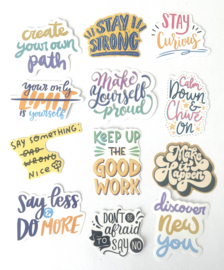 create
your own
path
STAY
STRONG
STAY
Curious
your only
LIMIT
is yourself
Make
Yourself
proud
Calm
Down &
Chive
on
SAY SOMETHING:
BAD
WRONG
NICE
KEEP UP
THE
GOOD
WORK
Make
it
Happen
Say less
& DO
MORE
DON'T BE
afraid
TO
SAY NO
discover
New
you